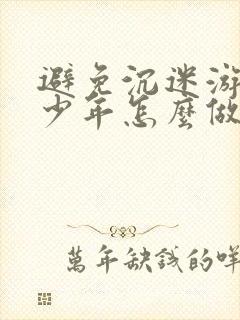 避免沉迷游
少年怎麼做
萬年缺錢的咩